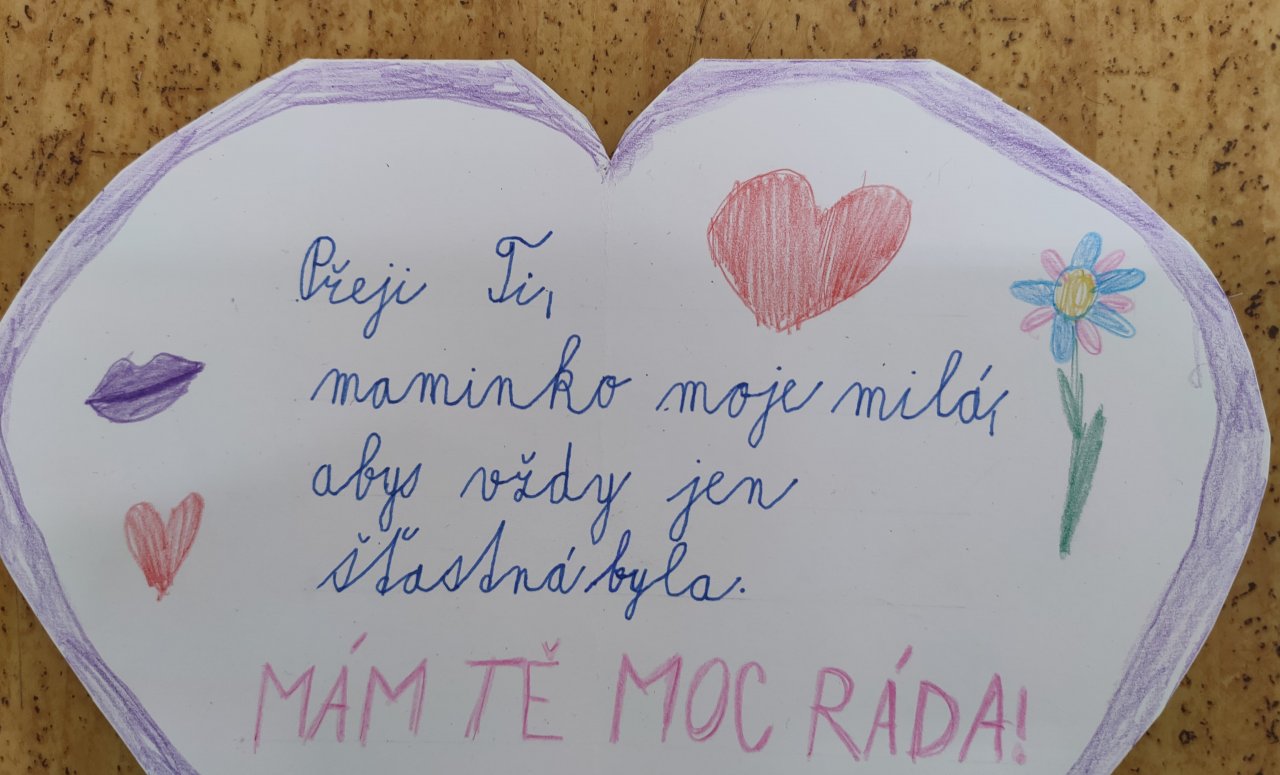 Přeji Ti,
maminko moje milá,
abys vždy jen
šťastná byla.
MÁM TĚ MOC RÁDA!